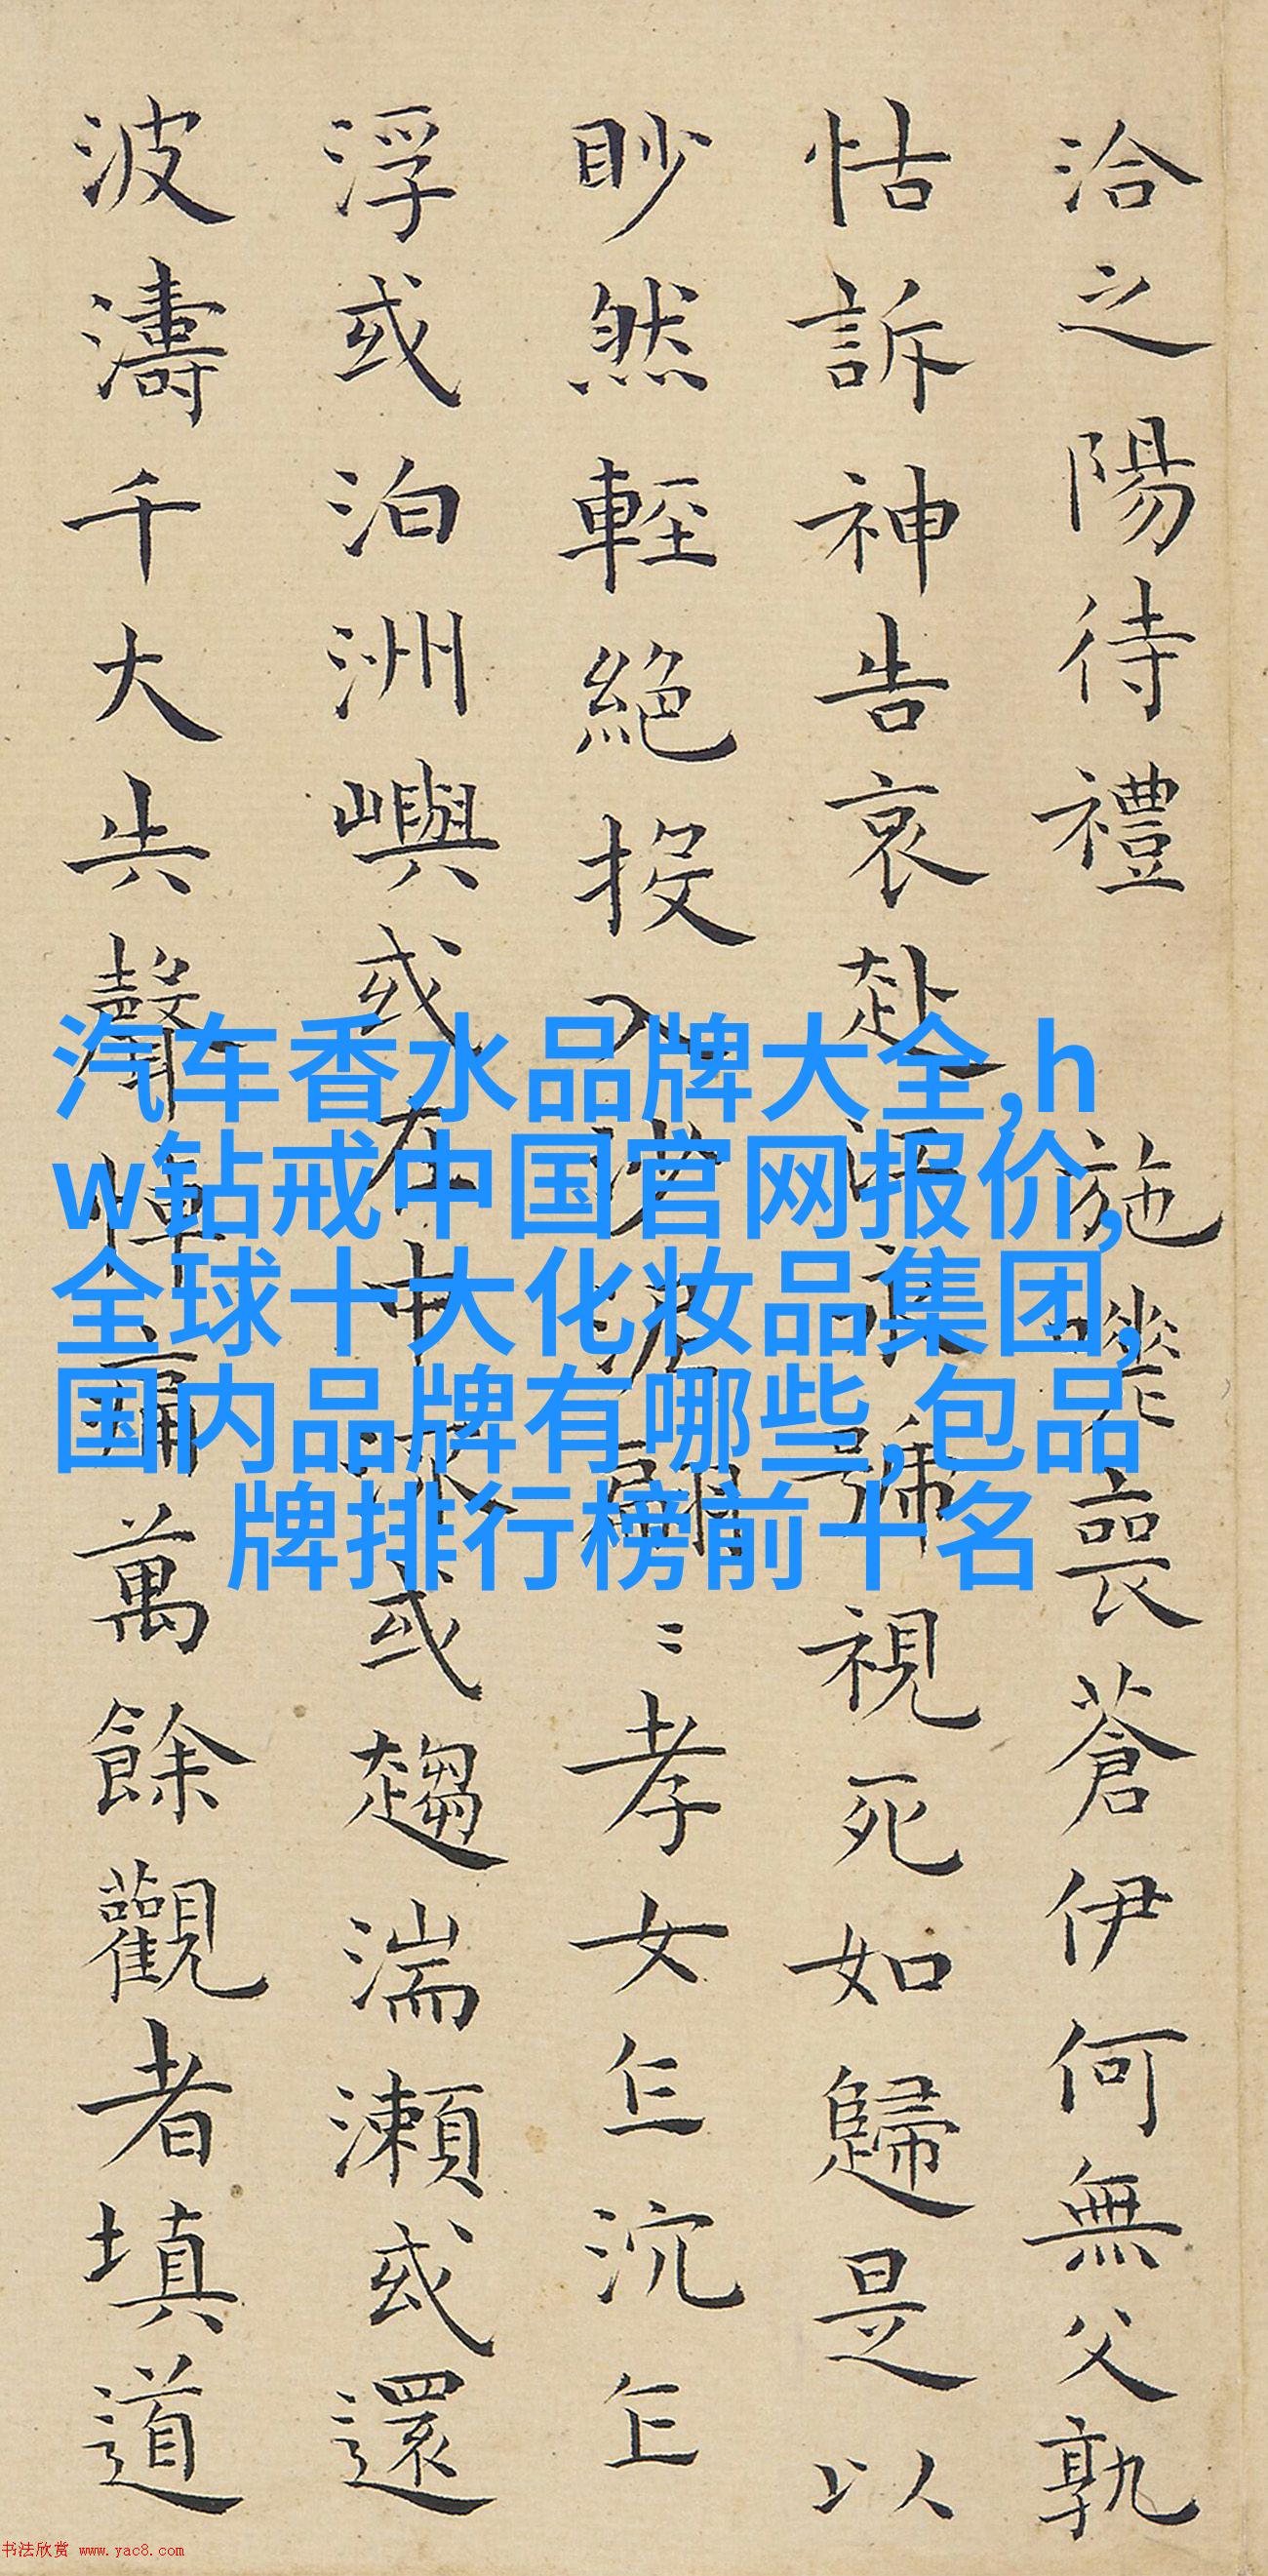 洽之陽待禮 施嗟喪蒼伊何無父孰
怙訴神告哀赴江永號視死如歸是以
眇然輕絕投入沙泥翩〻孝女乍沉乍
浮或泊洲嶼或在中流或趨湍瀨或還
波濤千大失聲悼痛萬餘觀者填道
汽车香水品牌大全,h
w钻戒中国官网报价,
全球十大化妆品集团,
国内品牌有哪些,包品
牌排行榜前十名
书法欣赏 www.yac8.com